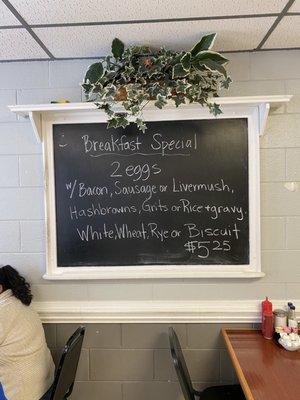 Breakfast Special
2 eggs
w/ Bacon, Sausage or Livermush,
Hashbrowns, Grits or Rice + gravy.
White, Wheat, Rye or Biscuit
$5.25